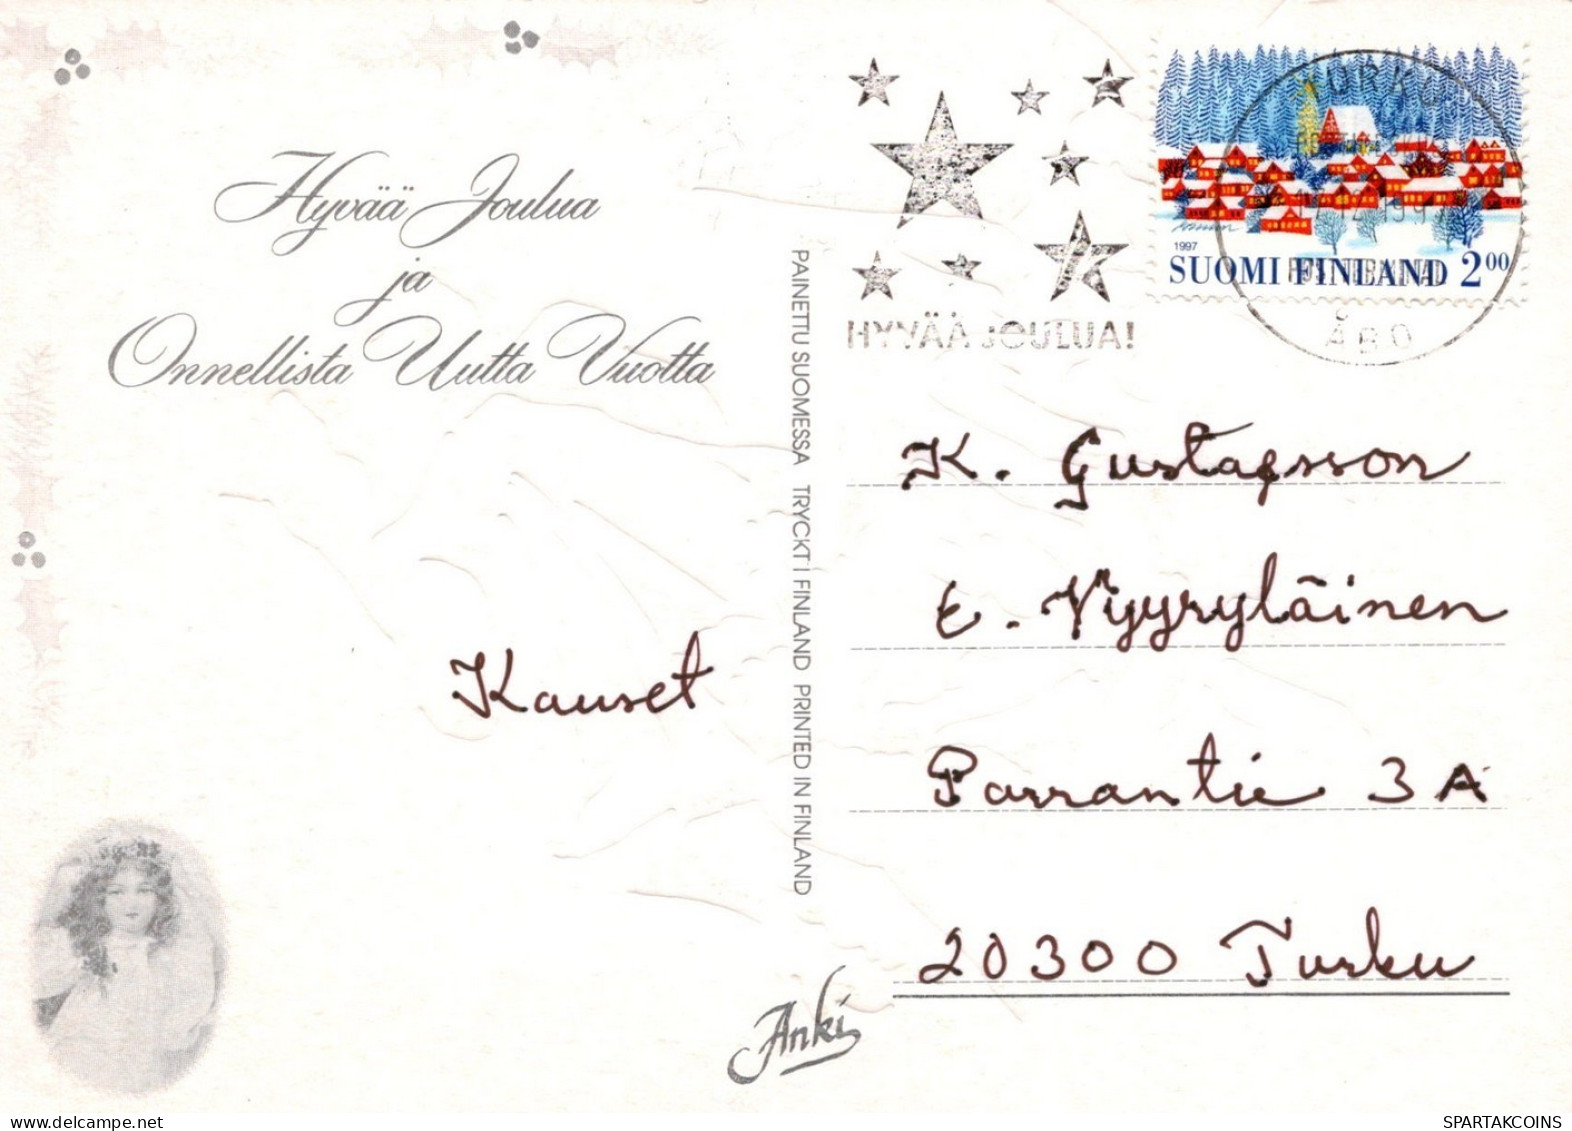 Hyvää Joulua
ja
Onnellista Uutta Vuotta
Kauset
PAINETTU SUOMESSA TRYCKT I FINLAND PRINTED IN FINLAND
Anki
HYVÄÄ JOULUA!
TURKU
ÅBO
1997
SUOMI FINLAND 2 00
K. Gustafsson
E. Vyyryläinen
Parrantie 3 A
20300 Turku
SPARTAKCOINS